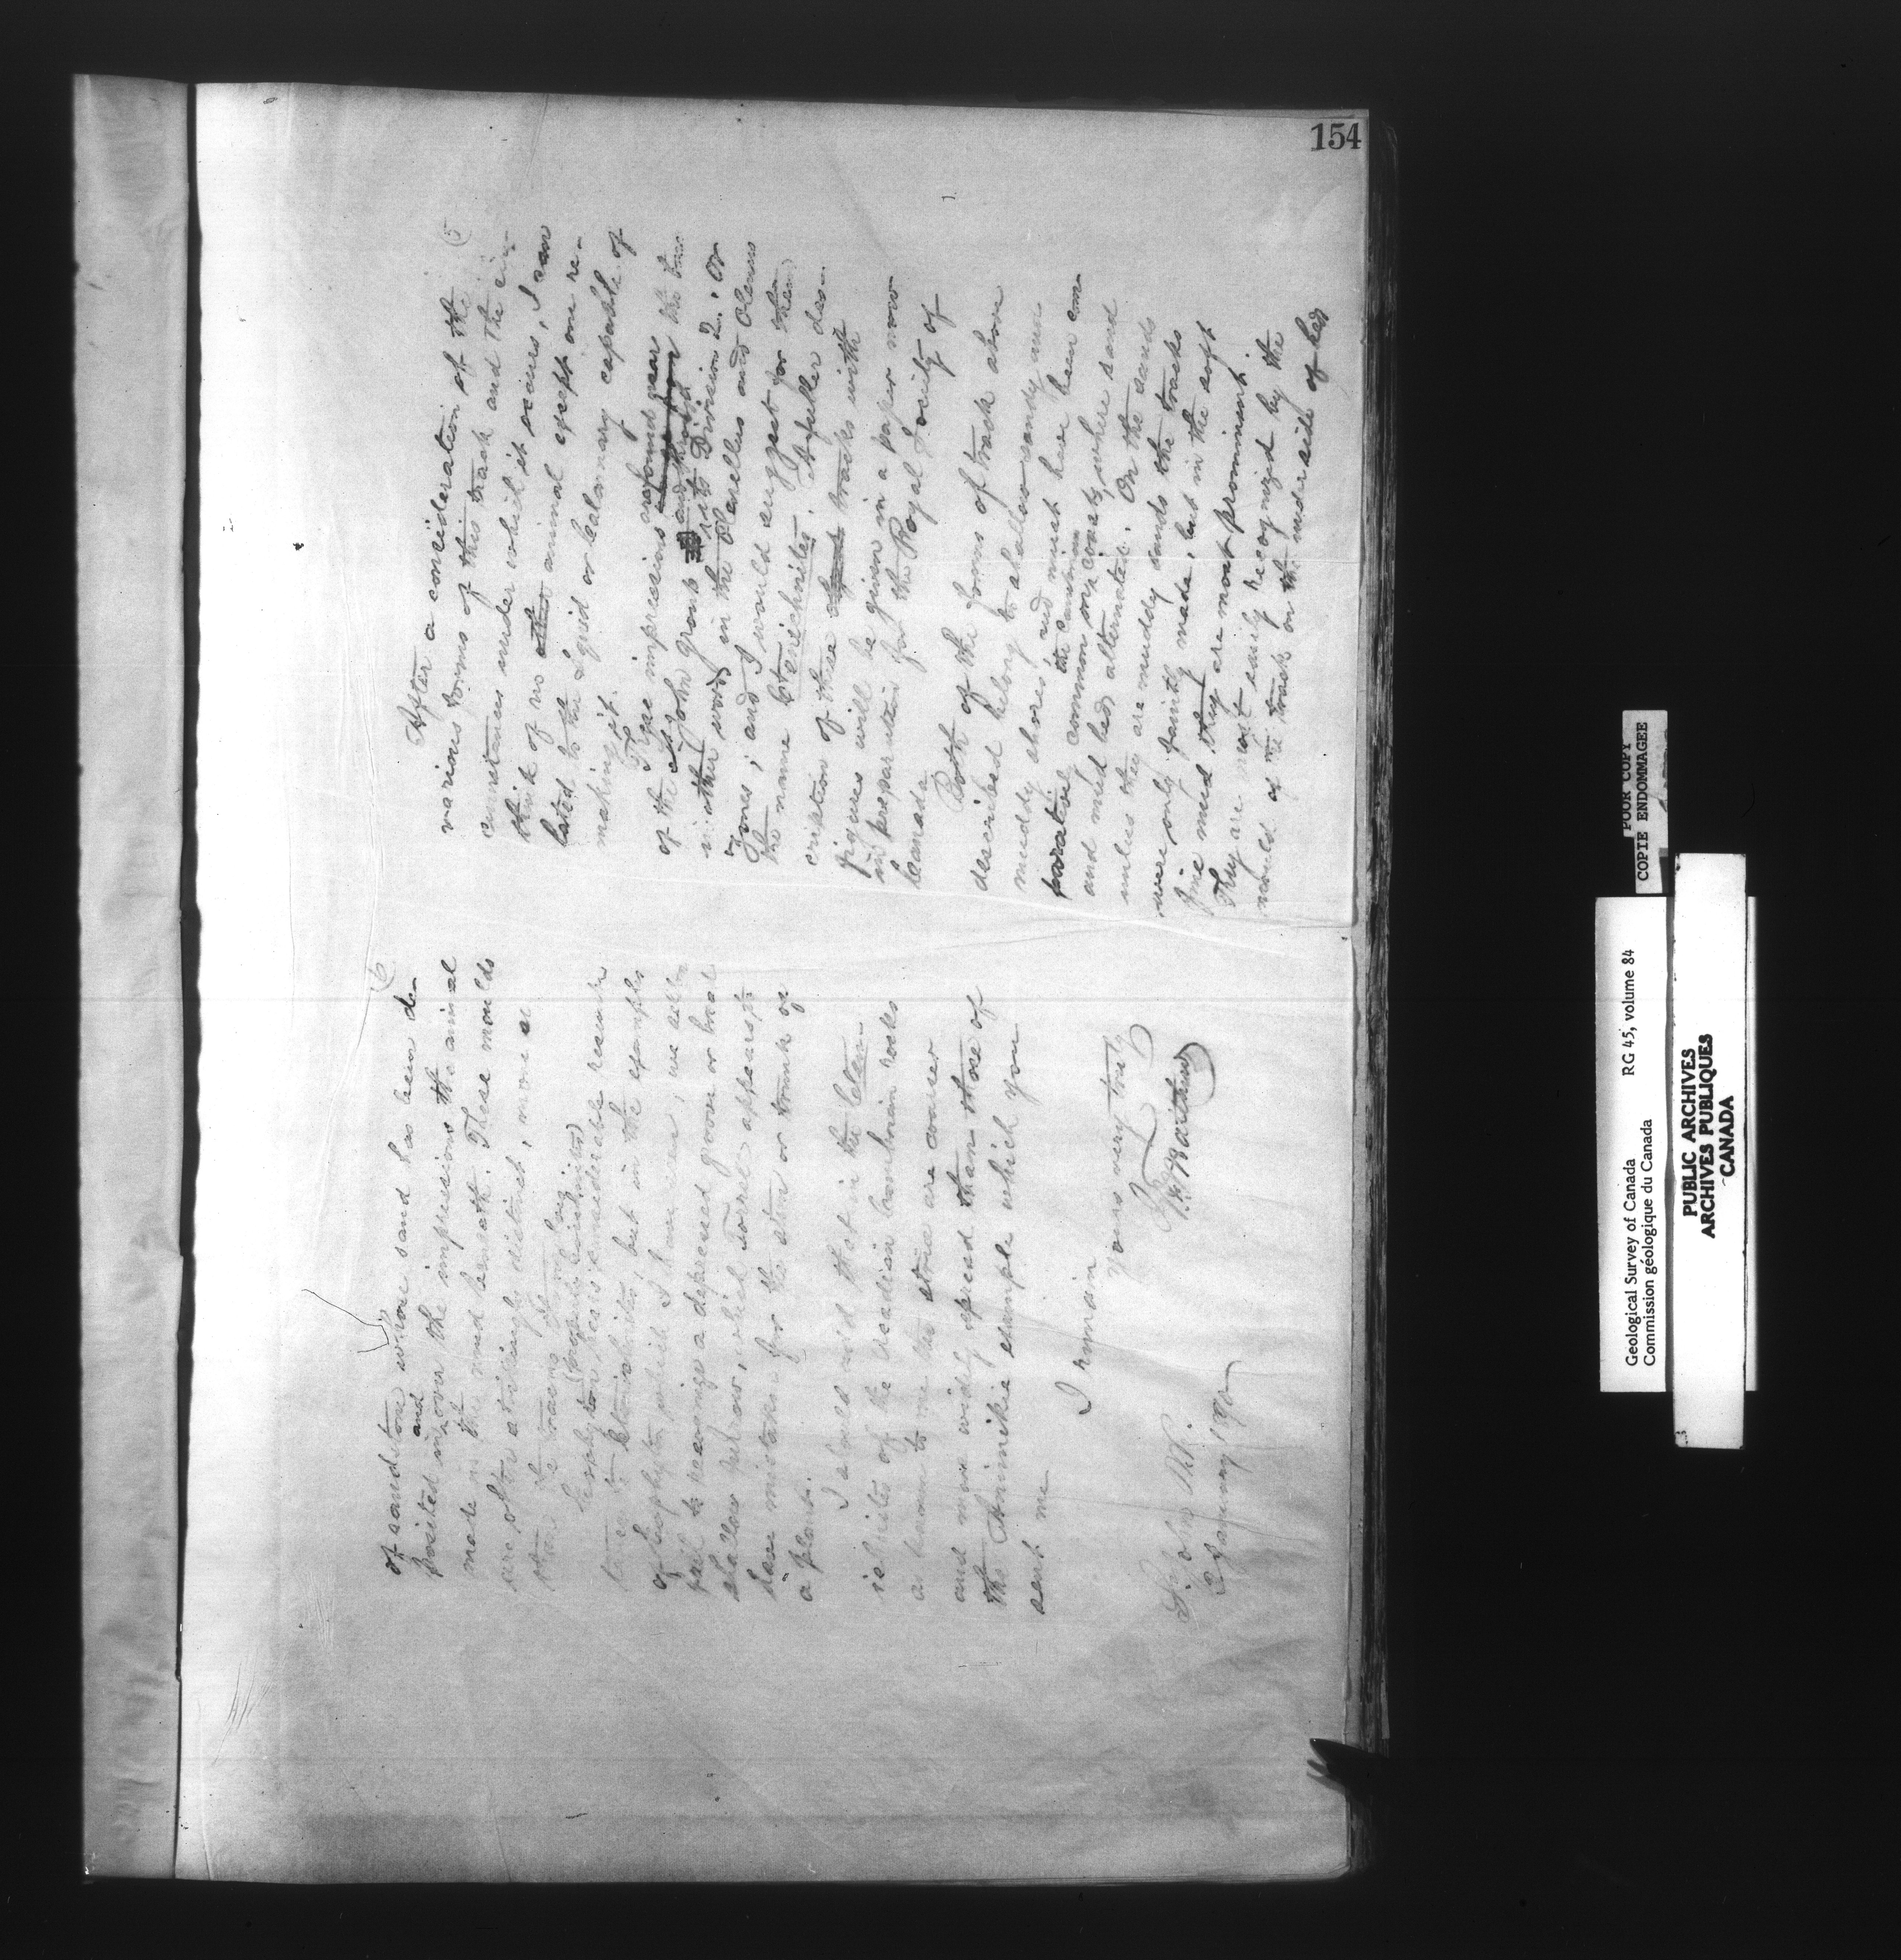 154
(5
After a consideration of the
various forms of this track and the cir-
cumstances under which it occurs, I can
think of no other animal except one re-
lated to the Squid or Calamary capable of
making it.
These impressions are found near
of the St John group and through its Division 2. Or
in other words in the Parellus and Olenus
Zones; and I would suggest for them
the name Ctenichnites. A fuller des-
cription of these tracks with
figures will be given in a paper now
in preparation for the Royal Society of
Canada.
Both of the forms of track above
described belong to shallow sandy and
muddy shores, and must have been com-
paratively common on coasts, where sand
and mud beds alternated. On the sands
unless they are muddy sands the tracks
were only faintly made, but in the soft
fine mud they are most prominent.
They are most easily recognized by the
mould of the track on the under side of beds
(6
of sandstone whose sand has been de-
posited in and over the impressions the animal
made in the mud beneath. These moulds
are often strikingly distinct, more so
than the tracks
bears considerable resemb-
lance to Ctenichnites, but in the examples
of Eophyton which I have seen, we all
fail to recognize a depressed groove or
shallow furrow, which Torrel appears to
have mistaken for the stem or trunk of
a plant.
I should add that in the Cten-
ichnites of the Acadian Cambrian rocks
as known to me the striae are coarser
and more widely spread than those of
the Animikie example which you
sent me
I remain
Yours very truly
G. F. Matthew
St John N.B.
January 1890
POOR COPY
COPIE ENDOMMAGEE
Geological Survey of Canada RG 45, volume 84
Commission géologique du Canada
PUBLIC ARCHIVES
ARCHIVES PUBLIQUES
CANADA